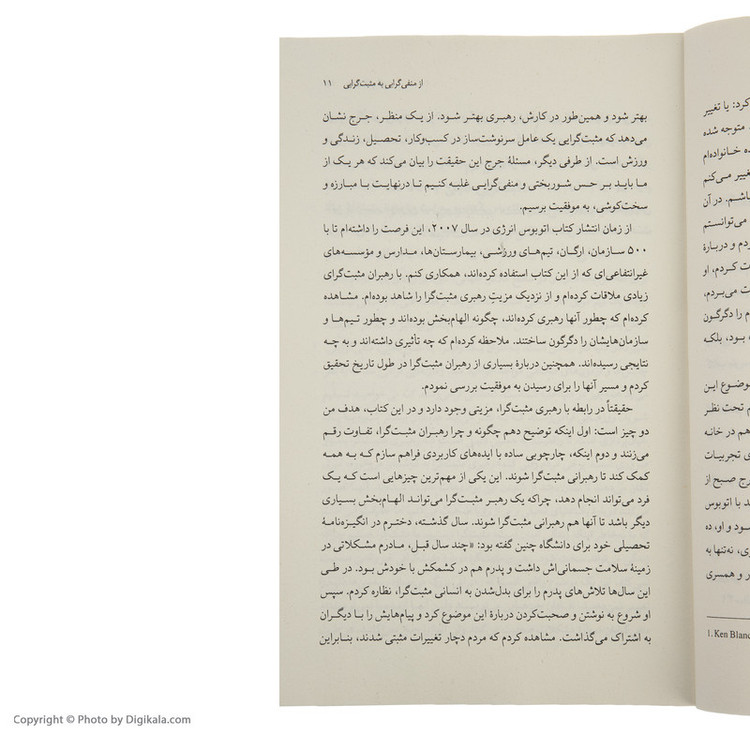 از منفی‌گرایی به مثبت‌گرایی ۱۱
بهتر شود و همین‌طور در کارش، رهبری بهتر شود. از یک منظر، جرج نشان
می‌دهد که مثبت‌گرایی یک عامل سرنوشت‌ساز در کسب‌وکار، تحصیل، زندگی و
ورزش است. از طرفی دیگر، مسئلهٔ جرج این حقیقت را بیان می‌کند که هر یک از
ما باید بر حس شوربختی و منفی‌گرایی غلبه کنیم تا درنهایت با مبارزه و
سخت‌کوشی، به موفقیت برسیم.
از زمان انتشار کتاب اتوبوس انرژی در سال ۲۰۰۷، این فرصت را داشته‌ام تا با
۵۰۰ سازمان، ارگان، تیم‌های ورزشی، بیمارستان‌ها، مدارس و مؤسسه‌های
غیرانتفاعی‌ای که از این کتاب استفاده کرده‌اند، همکاری کنم. با رهبران مثبت‌گرای
زیادی ملاقات کرده‌ام و از نزدیک مزیتِ رهبری مثبت‌گرا را شاهد بوده‌ام. مشاهده
کرده‌ام که چطور آنها رهبری کرده‌اند، چگونه الهام‌بخش بوده‌اند و چطور تیم‌ها و
سازمان‌هایشان را دگرگون ساختند. ملاحظه کرده‌ام که چه تأثیری داشته‌اند و به چه
نتایجی رسیده‌اند. همچنین دربارهٔ بسیاری از رهبران مثبت‌گرا در طول تاریخ تحقیق
کردم و مسیر آنها را برای رسیدن به موفقیت بررسی نمودم.
حقیقتاً در رابطه با رهبری مثبت‌گرا، مزیتی وجود دارد و در این کتاب، هدف من
دو چیز است: اول اینکه توضیح دهم چگونه و چرا رهبران مثبت‌گرا، تفاوت رقم
می‌زنند و دوم اینکه، چارچوبی ساده با ایده‌های کاربردی فراهم سازم که به همه
کمک کند تا رهبرانی مثبت‌گرا شوند. این یکی از مهم‌ترین چیزهایی است که یک
فرد می‌تواند انجام دهد، چراکه یک رهبر مثبت‌گرا می‌تواند الهام‌بخش بسیاری
دیگر باشد تا آنها هم رهبرانی مثبت‌گرا شوند. سال گذشته، دخترم در انگیزه‌نامهٔ
تحصیلی خود برای دانشگاه چنین گفته بود: «چند سال قبل، مادرم مشکلاتی در
زمینهٔ سلامت جسمانی‌اش داشت و پدرم هم در کشمکش با خودش بود. در طی
این سال‌ها تلاش‌های پدرم را برای بدل‌شدن به انسانی مثبت‌گرا، نظاره کردم. سپس
او شروع به نوشتن و صحبت‌کردن دربارهٔ این موضوع کرد و پیام‌هایش را با دیگران
به اشتراک می‌گذاشت. مشاهده کردم که مردم دچار تغییرات مثبتی شدند، بنابراین
کرد: یا تغییر
متوجه شده
خانواده‌ام
تغییر می‌کنم
باشم. در آن
می‌توانستم
و دربارهٔ
کردم، او
می‌بردم،
را دگرگون
بود، بلکه
موضوع این
تحت نظر
هم در خانه
تجربیات
صبح از
با اتوبوس
و او، ده
نه‌تنها به
و همسری
1. Ken Blanc
Copyright © Photo by Digikala.com